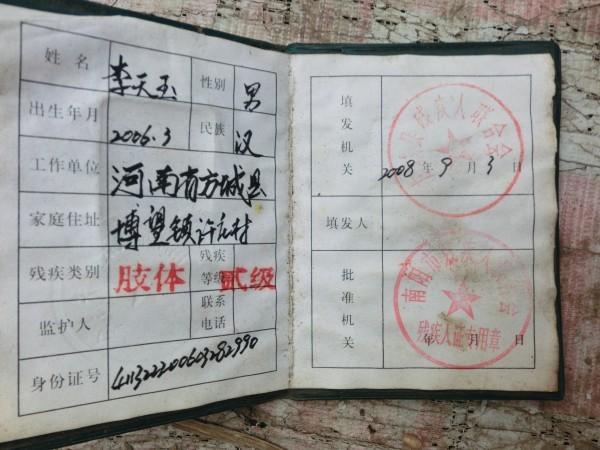 姓名 李天玉 性别 男
出生年月 2006.3 民族 汉
工作单位 河南省方城县
家庭住址 博望镇许庄村
残疾类别 肢体 残疾等级 贰级
监护人 联系电话
身份证号
填发机关 县残疾人联合会
2008年9月3日
填发人
批准机关 南阳市残疾人联合会
残疾人证专用章
年 月 日